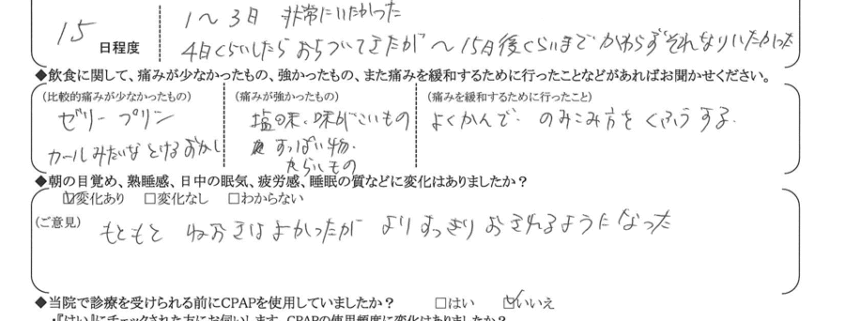 15 日程度
1〜3日 非常にいたかった
4日くらいしたら おちついてきたが 〜15日後くらいまで かわらずそれなりいたかった
◆飲食に関して、痛みが少なかったもの、強かったもの、また痛みを緩和するために行ったことなどがあればお聞かせください。
(比較的痛みが少なかったもの)
ゼリー プリン
カールみたいな とけるおかし
(痛みが強かったもの)
塩味、味がこいもの
すっぱい物、
からいもの
(痛みを緩和するために行ったこと)
よくかんで、のみこみ方を くふうする.
◆朝の目覚め、熟睡感、日中の眠気、疲労感、睡眠の質などに変化はありましたか？
☑変化あり □変化なし □わからない
(ご意見)
もともと ねおきはよかったが よりすっきり おきれるようになった
◆当院で診療を受けられる前にCPAPを使用していましたか？ □はい ☑いいえ
・『はい』にチェックされた方にお伺いします。CPAPの使用頻度に変化はありましたか？